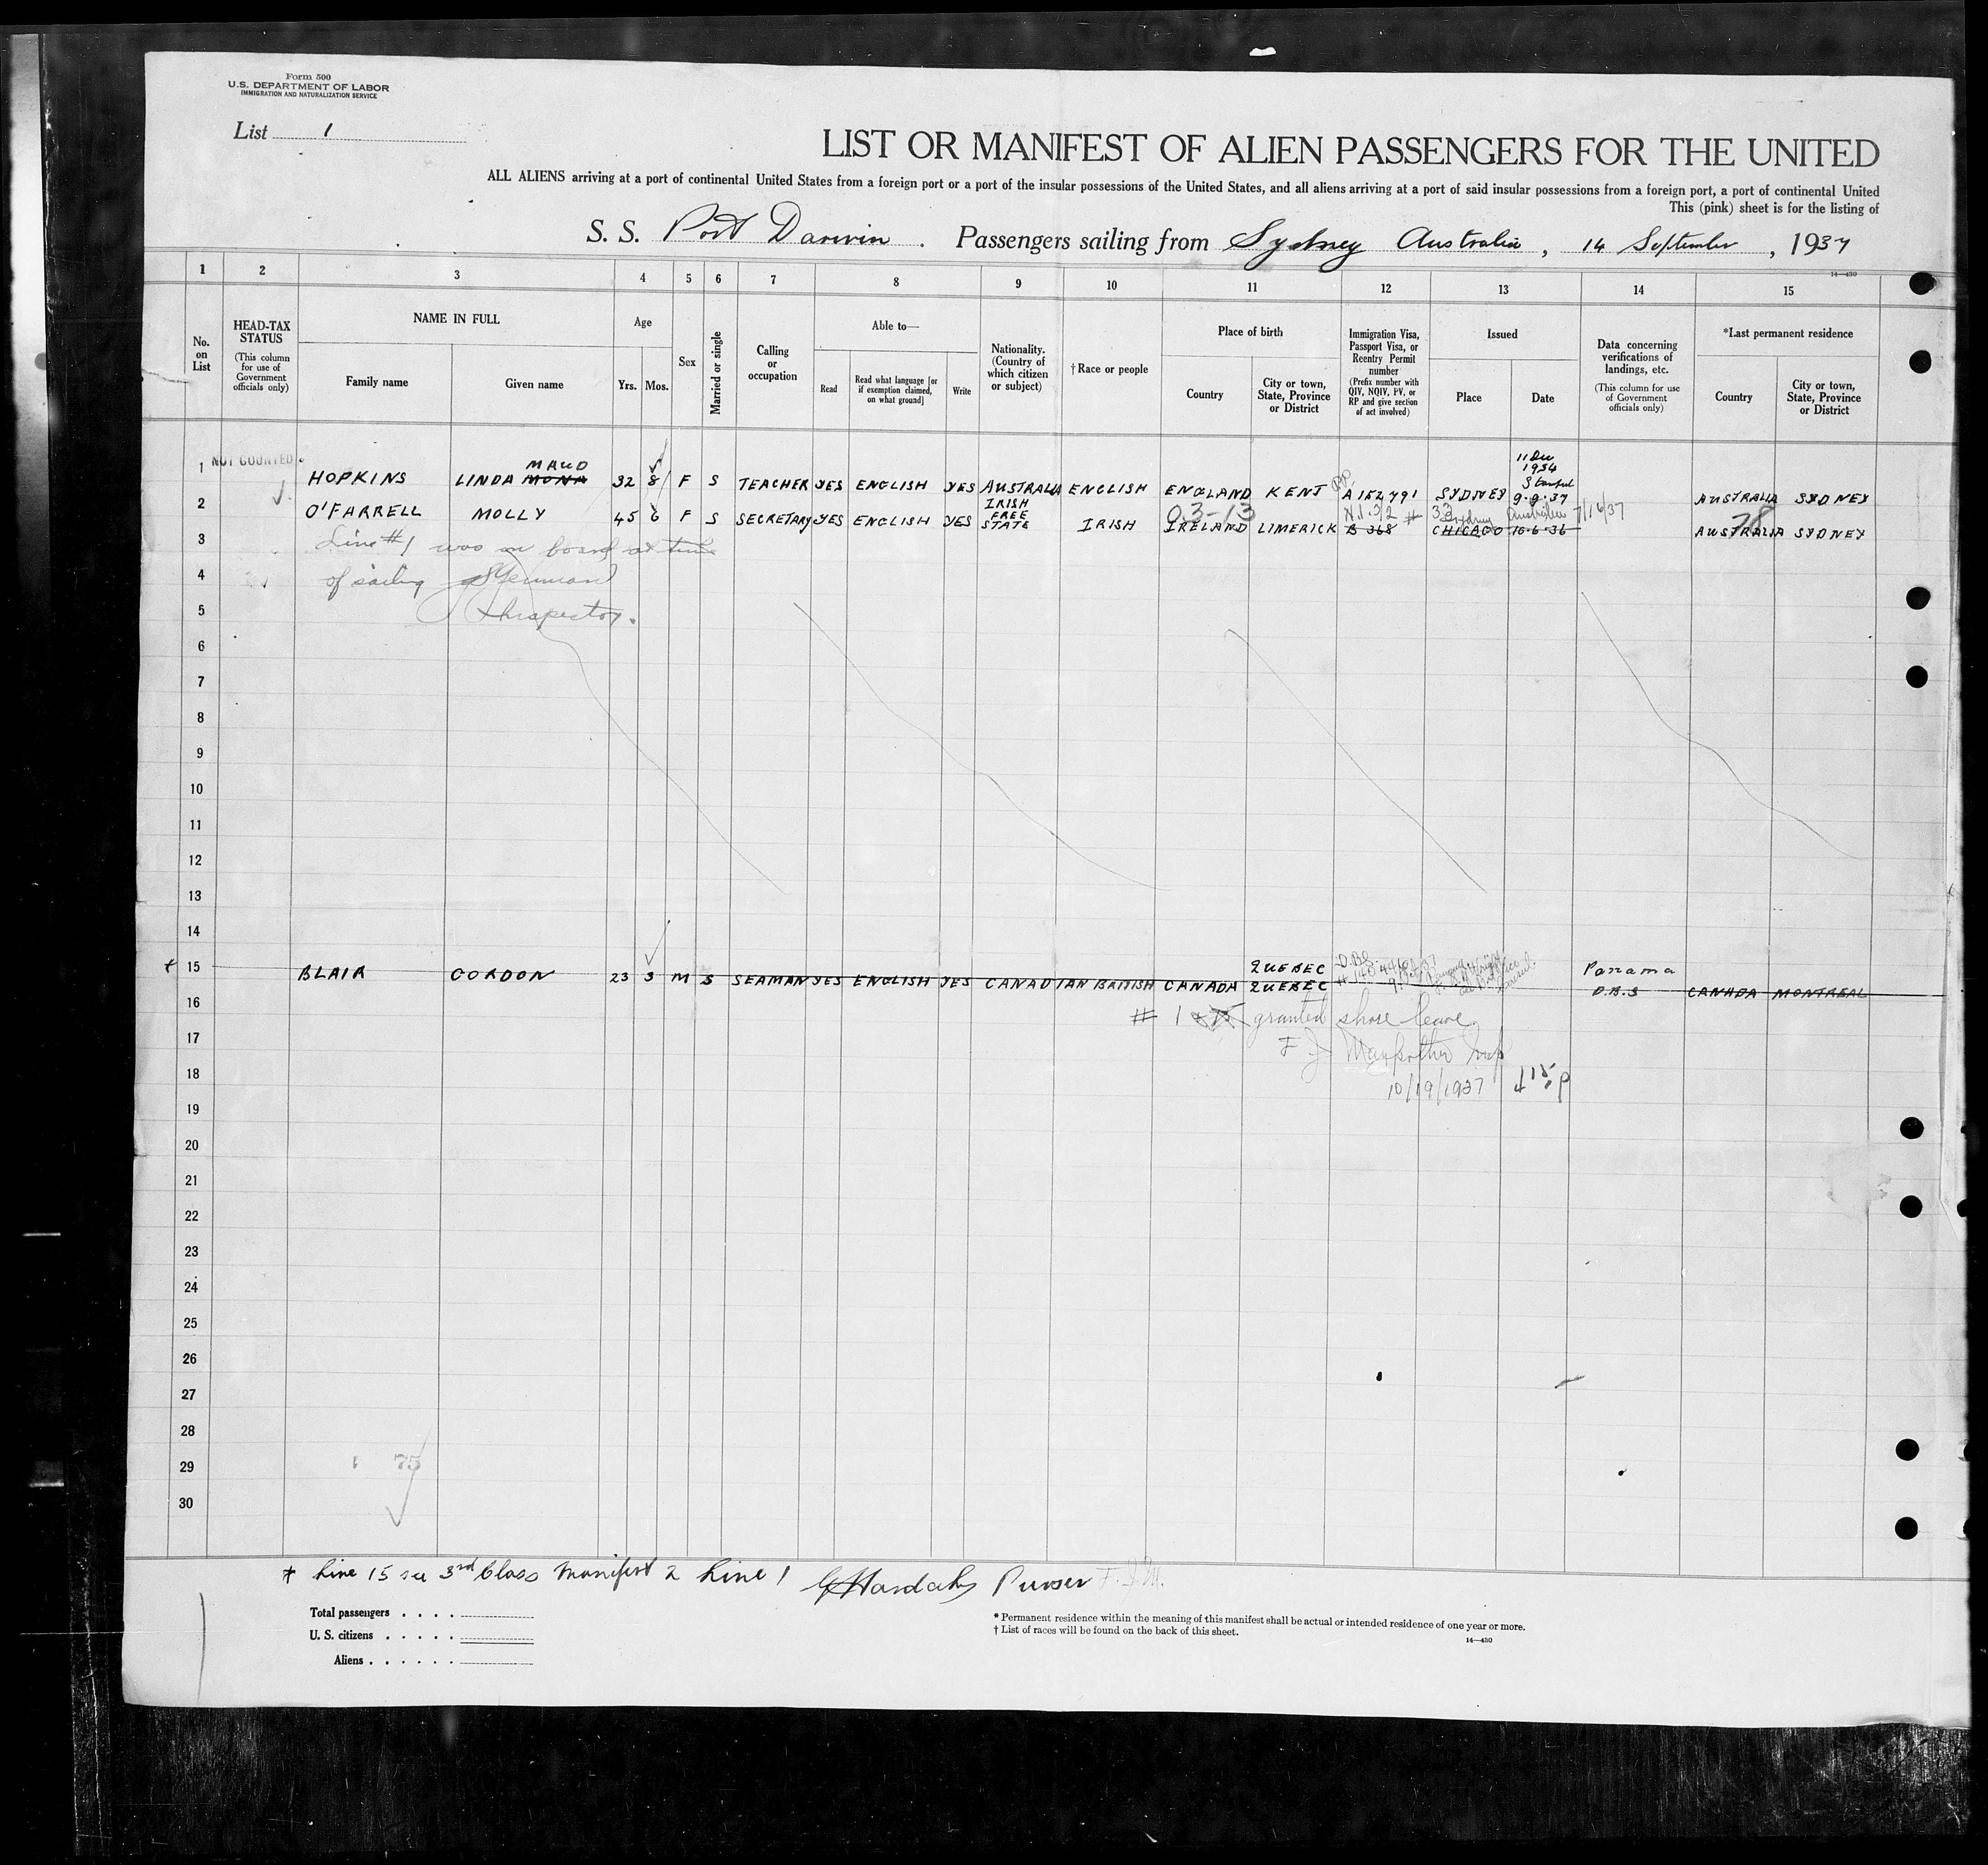 Form 500
U.S. DEPARTMENT OF LABOR
IMMIGRATION AND NATURALIZATION SERVICE
List 1
LIST OR MANIFEST OF ALIEN PASSENGERS FOR THE UNITED
ALL ALIENS arriving at a port of continental United States from a foreign port or a port of the insular possessions of the United States, and all aliens arriving at a port of said insular possessions from a foreign port, a port of continental United
This (pink) sheet is for the listing of
S. S. Port Darwin . Passengers sailing from Sydney Australia, 14 September, 1937
14—430
1 2 3 4 5 6 7 8 9 10 11 12 13 14 15
No. on List
HEAD-TAX STATUS
(This column for use of Government officials only)
NAME IN FULL
Family name
Given name
Age
Yrs. Mos.
Sex
Married or single
Calling or occupation
Able to—
Read
Read what language [or if exemption claimed, on what ground]
Write
Nationality. (Country of which citizen or subject)
†Race or people
Place of birth
Country
City or town, State, Province or District
Immigration Visa, Passport Visa, or Reentry Permit number
(Prefix number with QIV, NQIV, PV, or RP and give section of act involved)
Issued
Place
Date
Data concerning verifications of landings, etc.
(This column for use of Government officials only)
*Last permanent residence
Country
City or town, State, Province or District
1 NOT COUNTED HOPKINS LINDA MONA MAUD 32 8 F S TEACHER YES ENGLISH YES AUSTRALIA ENGLISH ENGLAND KENT PP. A152791 SYDNEY 11 Dec 1934 9.9.37 AUSTRALIA SYDNEY
2 O'FARRELL MOLLY 45 6 F S SECRETARY YES ENGLISH YES IRISH FREE STATE IRISH IRELAND LIMERICK B 368 CHICAGO 16.6.36 Sydney Australia 7/16/37 AUSTRALIA SYDNEY
03-13
28
3 Line #1 was on board at time
4 of sailing
5 Inspector.
6
7
8
9
10
11
12
13
14
15 BLAIR GORDON 23 3 M S SEAMAN YES ENGLISH YES CANADIAN BRITISH CANADA QUEBEC QUEBEC Panama D.B.S CANADA MONTREAL
16 # 1 granted shore leave
17
18 10/19/1937 415 P
19
20
21
22
23
24
25
26
27
28
29 75
30
* Line 15 see 3rd Class Manifest 2 Line 1 Purser F.J.M.
Total passengers
U. S. citizens
Aliens
* Permanent residence within the meaning of this manifest shall be actual or intended residence of one year or more.
† List of races will be found on the back of this sheet.
14—430